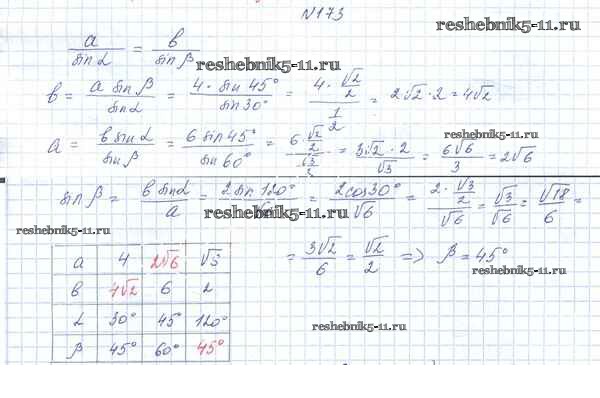 №173
reshebnik5-11.ru
a/sin α = b/sin β
reshebnik5-11.ru
b = a sin β/sin α = 4 · sin 45°/sin 30° = 4 · √2/2 / 1/2 = 2√2 · 2 = 4√2
reshebnik5-11.ru
a = b sin α/sin β = 6 sin 45°/sin 60° = 6 · √2/2 / √3/2 = 3√2 · 2/√3 = 6√6/3 = 2√6
sin β = b sin α/a = 2 sin 120°/√6 = 2cos 30°/√6 = 2 · √3/2 / √6 = √3/√6 = √18/6 =
reshebnik5-11.ru
reshebnik5-11.ru
= 3√2/6 = √2/2 => β = 45°
reshebnik5-11.ru
a 4 2√6
b 4√2 6 2
α 30° 45° 120°
β 45° 60° 45°
reshebnik5-11.ru